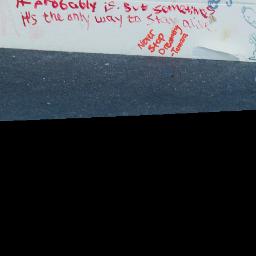 It probably is. But sometimes
it's the only way to stay alive
Never
Stop
Dreaming
-Tamara